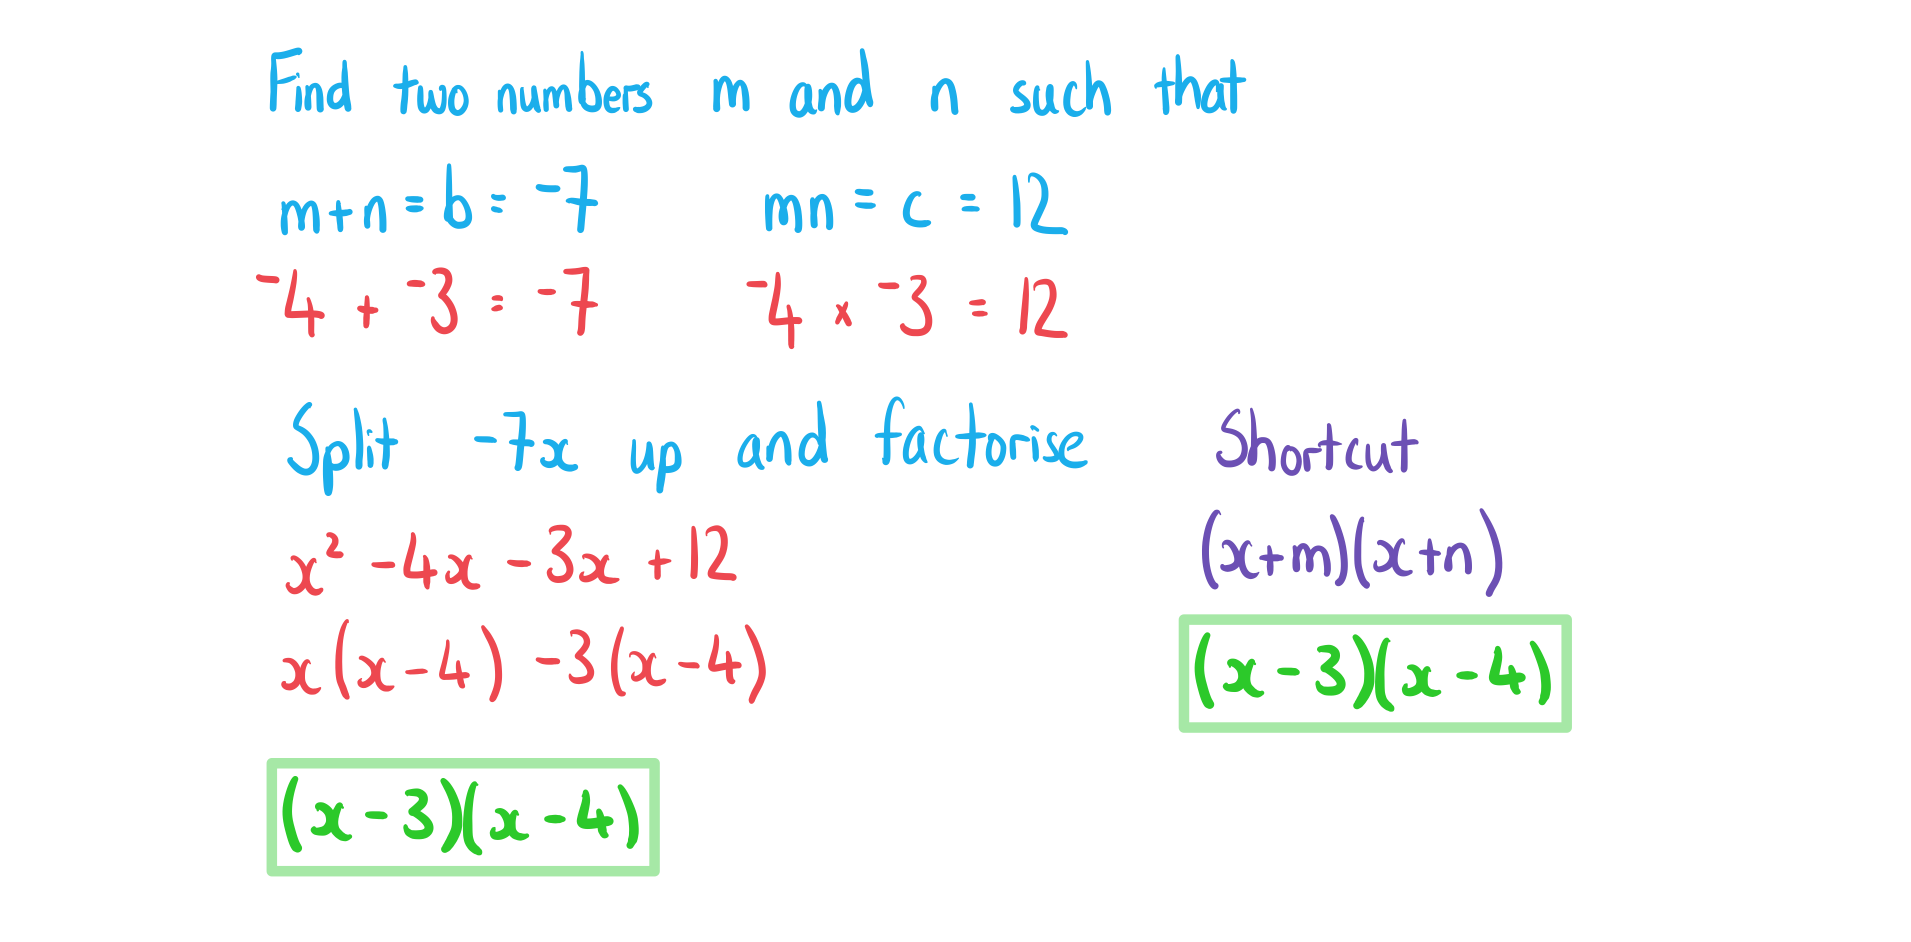 Find two numbers m and n such that
m+n = b = -7 mn = c = 12
-4 + -3 = -7 -4 × -3 = 12
Split -7x up and factorise
x² -4x -3x +12
x(x-4) -3(x-4)
(x-3)(x-4)
Shortcut
(x+m)(x+n)
(x-3)(x-4)